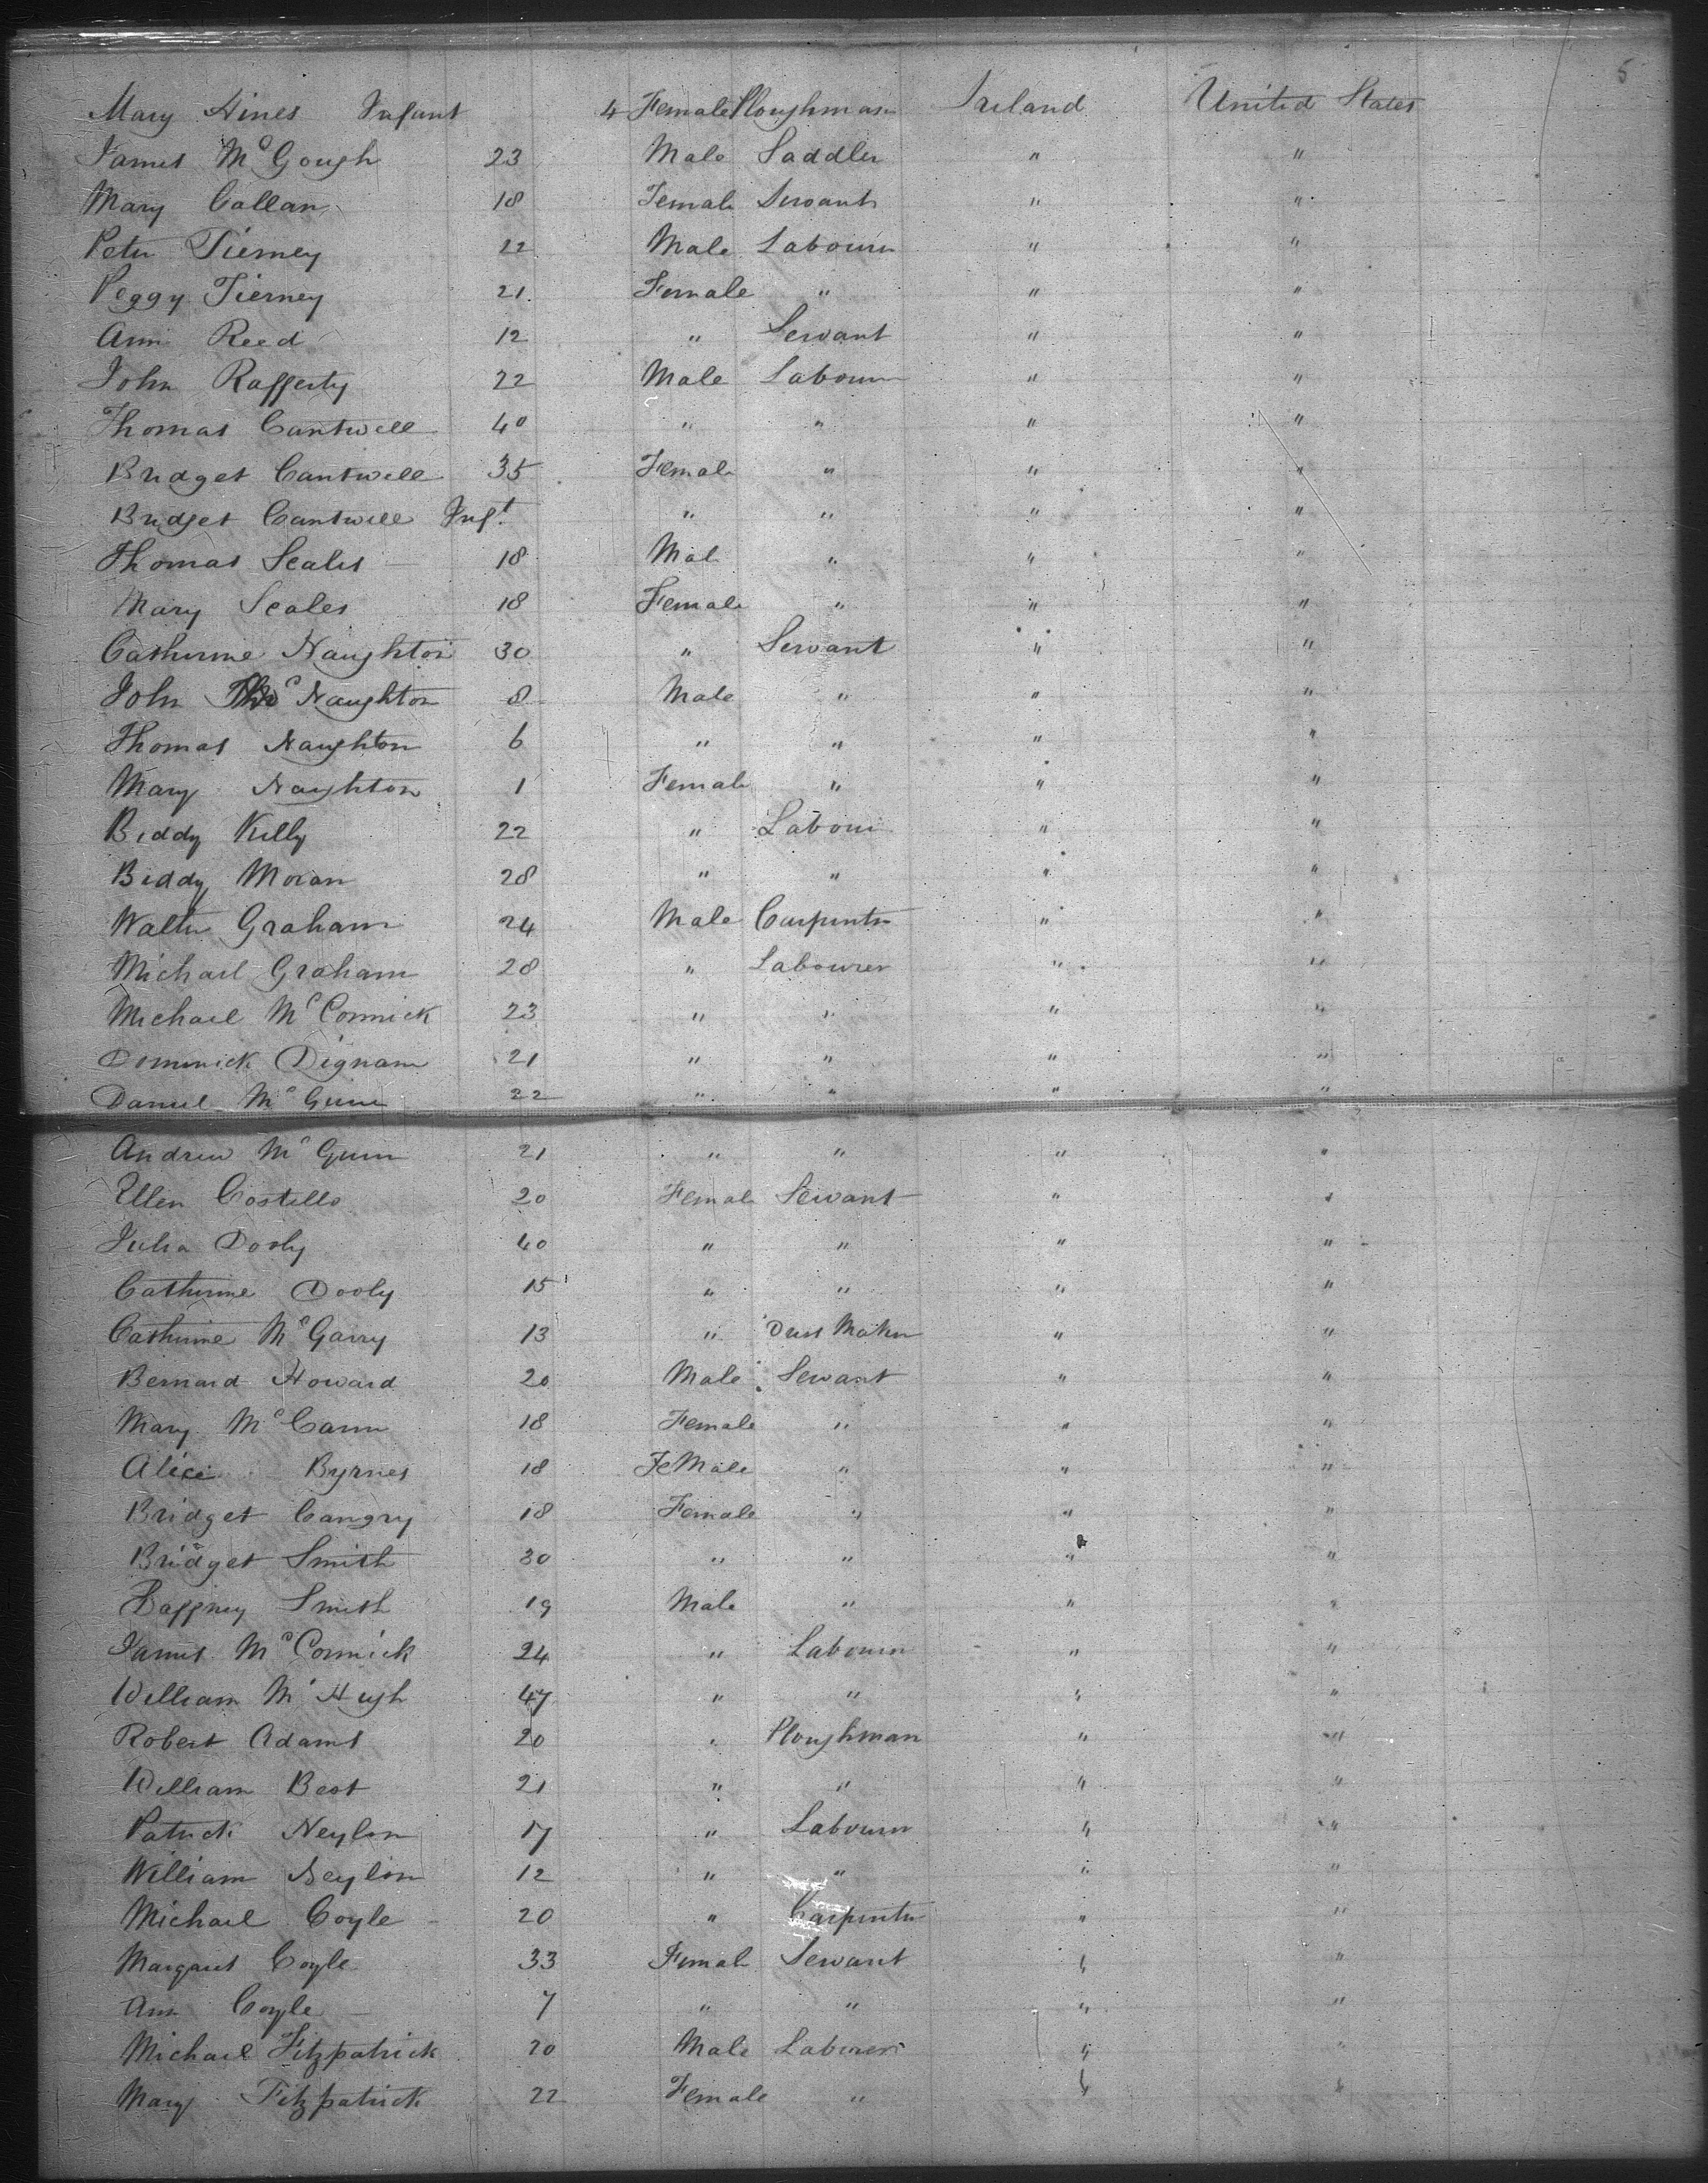 5
Mary Hines Infant 4 Female Ploughman Ireland United States
James McGough 23 Male Saddler " "
Mary Callan 18 Female Servant " "
Peter Tierney 22 Male Labourer " "
Peggy Tierney 21 Female " " "
Ann Reed 12 " Servant " "
John Rafferty 22 Male Labourer " "
Thomas Cantwell 40 " " " "
Bridget Cantwell 35 Female " " "
Bridget Cantwell Inft " " " "
Thomas Scales 18 Male " " "
Mary Scales 18 Female " " "
Catherine Naughton 30 " Servant " "
John Naughton 8 Male " " "
Thomas Naughton 6 " " " "
Mary Naughton 1 Female " " "
Biddy Killy 22 " Labour " "
Biddy Moran 28 " " " "
Walter Graham 24 Male Carpenter " "
Michael Graham 28 " Labourer " "
Michael McCormick 23 " " " "
Dominick Dignam 21 " " " "
Daniel McGunn 22 " " " "
Andrew McGunn 21 " " " "
Ellen Costello 20 Female Servant " "
Julia Dooly 40 " " " "
Catherine Dooly 15 " " " "
Catherine McGarry 13 " Dress Maker " "
Bernard Howard 20 Male Servant " "
Mary McCann 18 Female " " "
Alice Byrnes 18 FeMale " " "
Bridget Cangry 18 Female " " "
Bridget Smith 30 " " " "
Smith 19 Male " " "
James McCormick 24 " Labourer " "
William McHugh 47 " " " "
Robert Adams 20 " Ploughman " "
William Best 21 " " " "
Patrick Neylon 17 " Labourer " "
William Neylon 12 " " " "
Michael Coyle 20 " Carpenter " "
Margaret Coyle 33 Female Servant " "
Ann Coyle 7 " " " "
Michael Fitzpatrick 20 Male Labourer " "
Mary Fitzpatrick 22 Female " " "